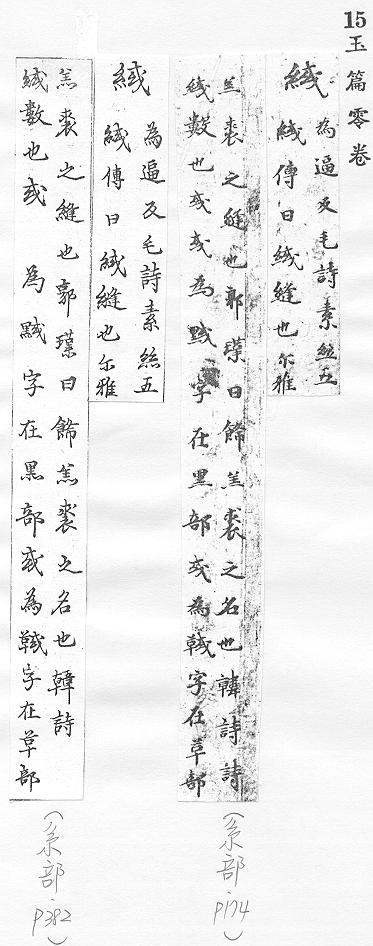 15玉篇零卷
緎 為逼反毛詩素絲五
緎傳曰緎縫也尓雅
羔裘之縫也郭璞曰飾羔裘之名也韓詩詩
緎數也或或為黬字在黑部或為韯字在草部
(糸部.P174)
緎 為逼反毛詩素絲五
緎傳曰緎縫也尓雅
羔裘之縫也郭璞曰飾羔裘之名也韓詩
緎數也或 為黬字在黑部或為韯字在草部
(糸部.P382)